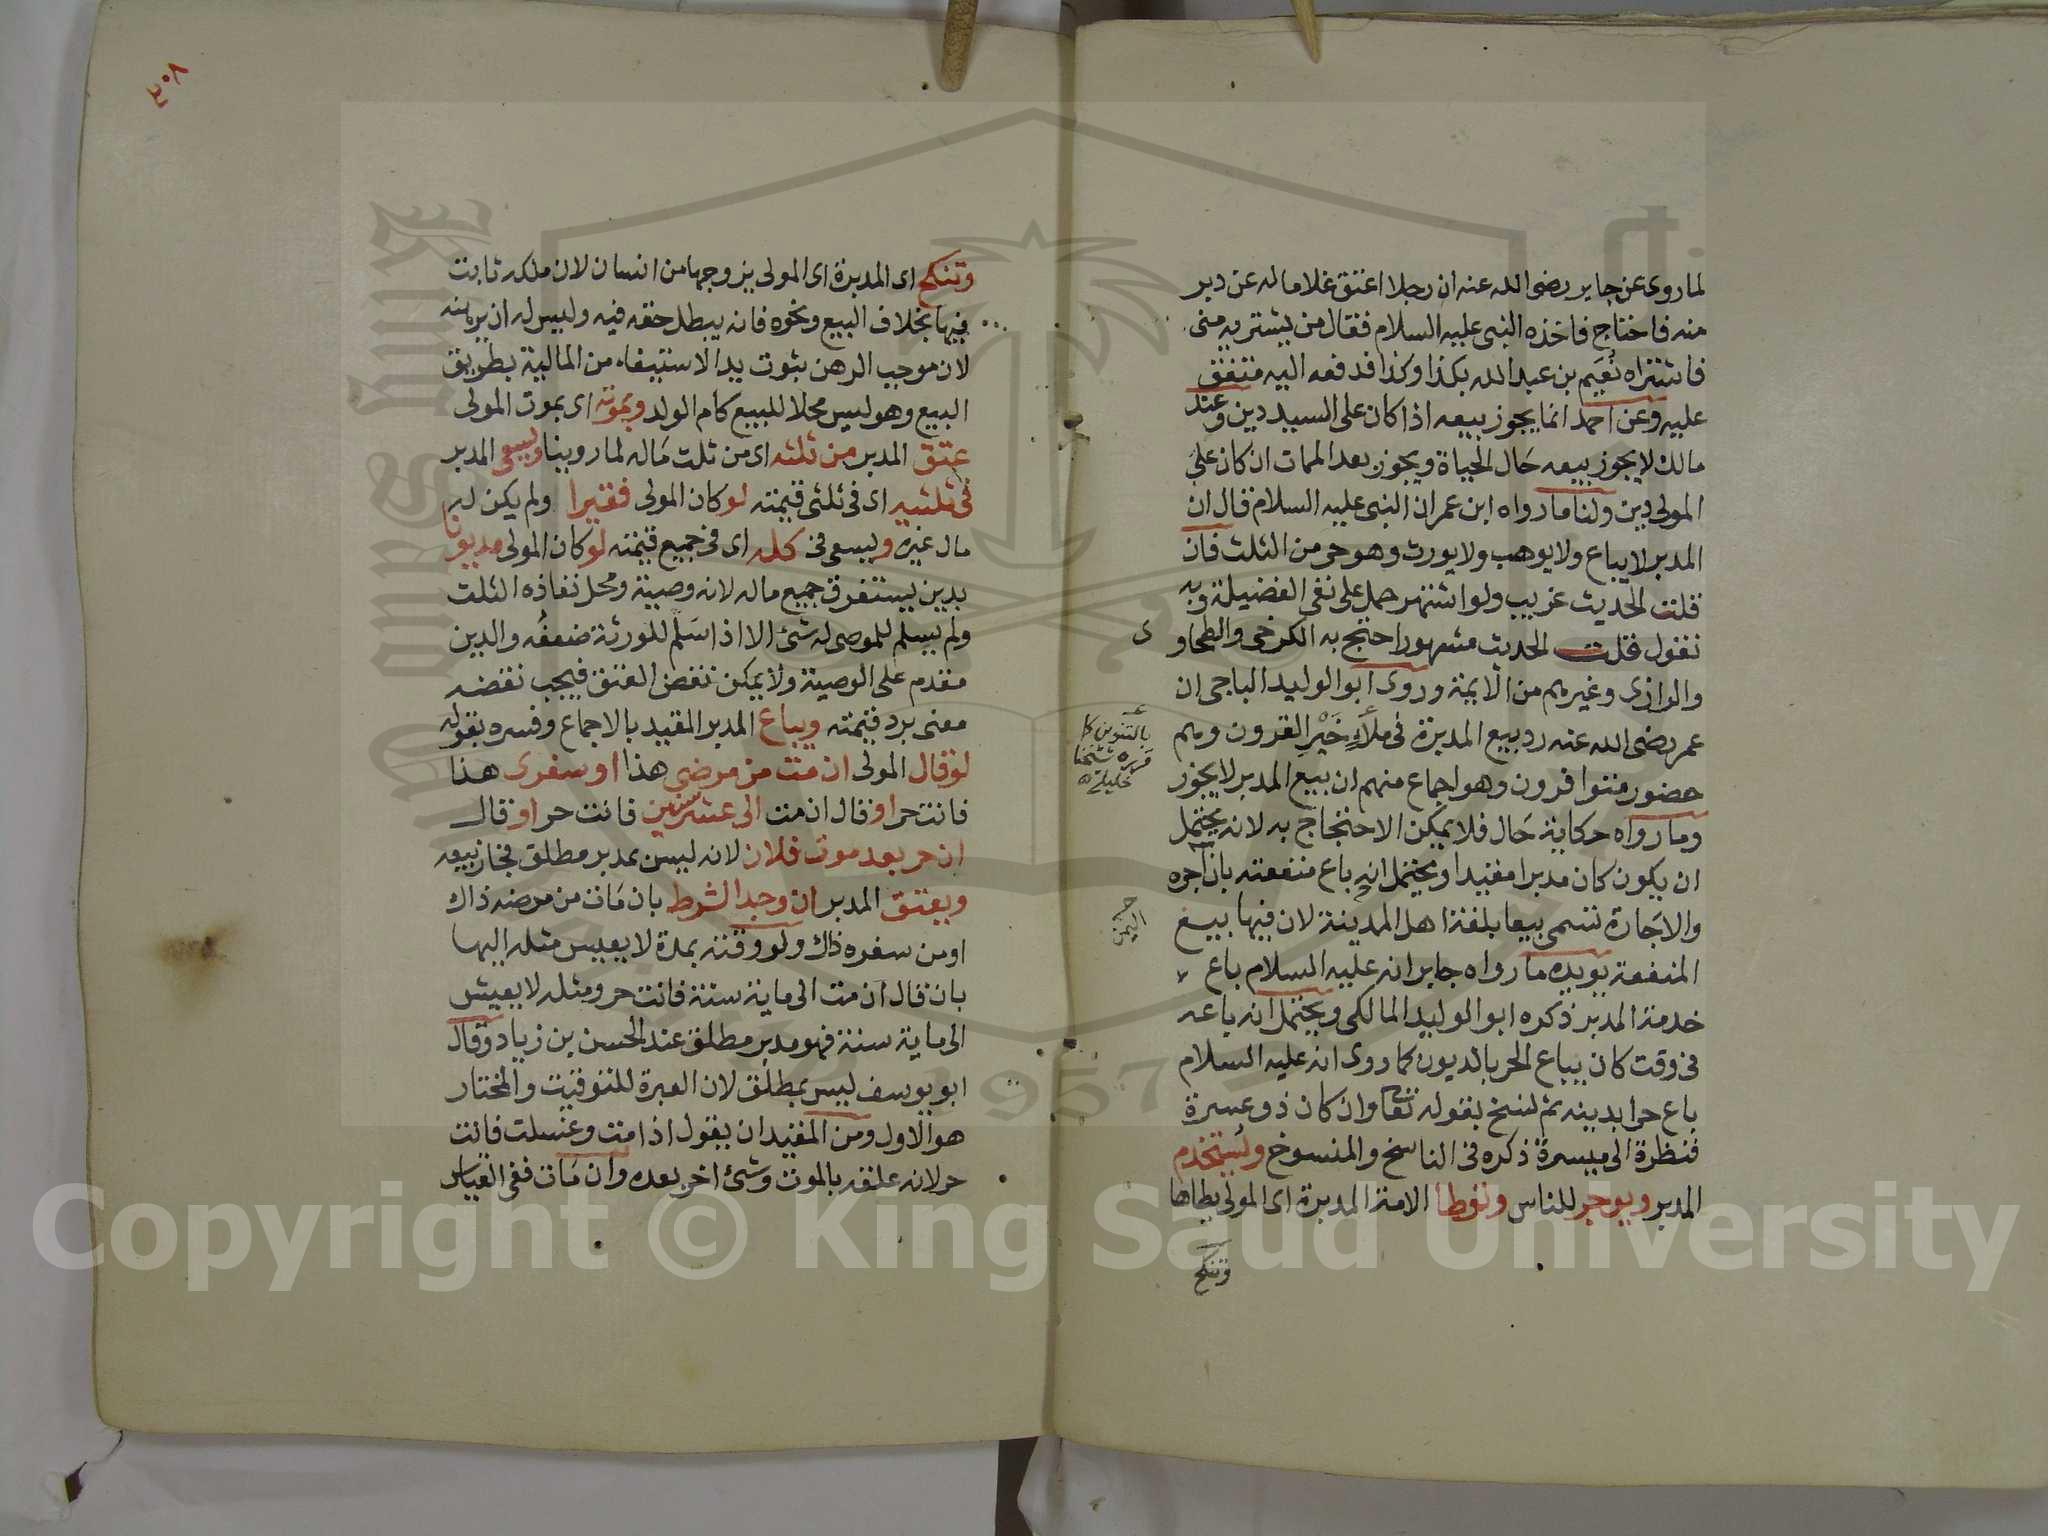 لما روى عن جابر رضى الله عنه ان رجلا اعتق غلاما له عن دبر
منه فاحتاج فاخذه النبى عليه السلام فقال من يشتريه منى
فاشتراه نُعَيم بن عبد الله بكذا وكذا فدفعه اليه متفق
عليه وعن احمد انما يجوز بيعه اذا كان على السيد دين وعند
مالك لا يجوز بيعه حَال الحياة ويجوز بعد الممات ان كان على
المولى دين ولنا ما رواه ابن عمر ان النبى عليه السلام قال ان
المدبر لا يباع ولا يوهب ولا يورث وهو حر من الثلث فان
قلت الحديث غريب ولو اشتهر حمل على نفى الفضيلة وبه
نقول قلت الحديث مشهور احتج به الكرخى والطحاو
ى
والرازى وغيرهم من الائمة وروى ابو الوليد الباجى ان
عمر رضى الله عنه رد بيع المدبرة فى ملأٍ خَيْرِ القرون وهم
حضور متوافرون وهو اجماع منهم ان بيع المدبر لا يجوز
وما رواه حكاية حَال فلا يمكن الاحتجاج به لانه يحتمل
ان يكون كان مدبرا مقيدا ويحتمل انه باع منفعته بان آجره
والاجَارة تسمى بيعا بلغة اهل المدينة لان فيها بيع
المنفعة يويده ما رواه جابر انه عليه السلام باع
خدمة المدبر ذكره ابو الوليد المالكى ويحتمل انه باعه
فى وقت كان يباع الحر بالديون كما روى انه عليه السلام
باع حرا بدينه ثم نسخ بقوله تعا وان كان ذو عسرة
فنظرة الى ميسرة ذكره فى الناسخ والمنسوخ ويستخدم
المدبر ويوجر للناس وتوطا الامة المدبرة اى المولى يطاها
وتنكح
بالتنوين كا
اليمن
٣٠٨
وتنكح اى المدبرة اى المولى يزوجها من انسان لان ملكه ثابت
فيها بخلاف البيع ونحوه فانه يبطل حقه فيه وليس له ان يرهنه
لان موجب الرهن ثبوت يد الاستيفاء من المالية بطريق
البيع وهو ليس محلا للبيع كام الولد وبموته اى بموت المولى
عتق المدبر من ثلثه اى من ثلث مَاله لما روينا ويسعى المدبر
فى ثلثيه اى فى ثلثى قيمته لو كان المولى فقيرا ولم يكن له
مال غيره ويسعى فى كله اى فى جميع قيمته لو كان المولى مديونا
بدين يستغرق جميع ماله لانه وصية ومحل نفاذه الثلث
ولم يسلم للموصى له شئ الا اذا سَلم للورثة ضعفُه والدين
مقدم على الوصية ولا يمكن نقض العتق فيجب نقضه
معنى برد قيمته ويباع المدبر المقيد بالاجماع وفسره بقوله
لو قال المولى ان مت من مرضى هذا او سفرى هذا
فانت حر او قال ان مت الى عشر سنين فانت حر او قال
ان حر بعد موت فلان لانه ليس بمدبر مطلق فجاز بيعه
ويعتق المدبر ان وجد الشرط بان مَات من مرضه ذاك
او من سفره ذاك ولو وقته بمدة لا يعيس مثله اليها
بان قال ان مت الى ماية سنة فانت حر ومثله لا يعيش
الى ماية سنة فهو مدبر مطلق عند الحسن بن زياد وقال
ابو يوسف ليس بمطلق لان العبرة للتوقيت والمختار
هو الاول ومن المقيد ان يقول اذا مت وغسلت فانت
حر لانه علقه بالموت وشئ اخر بعده وان مَات ففى القياس
Copyright © King Saud University
1957